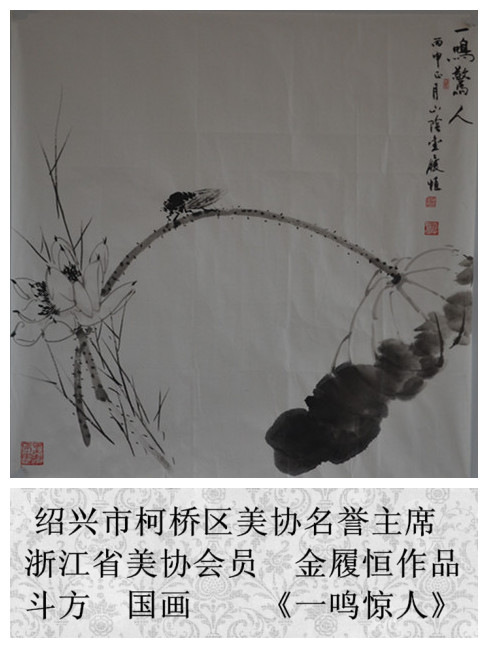 一鳴驚人
丙申正月山陰金履恒
绍兴市柯桥区美协名誉主席
浙江省美协会员 金履恒作品
斗方 国画 《一鸣惊人》